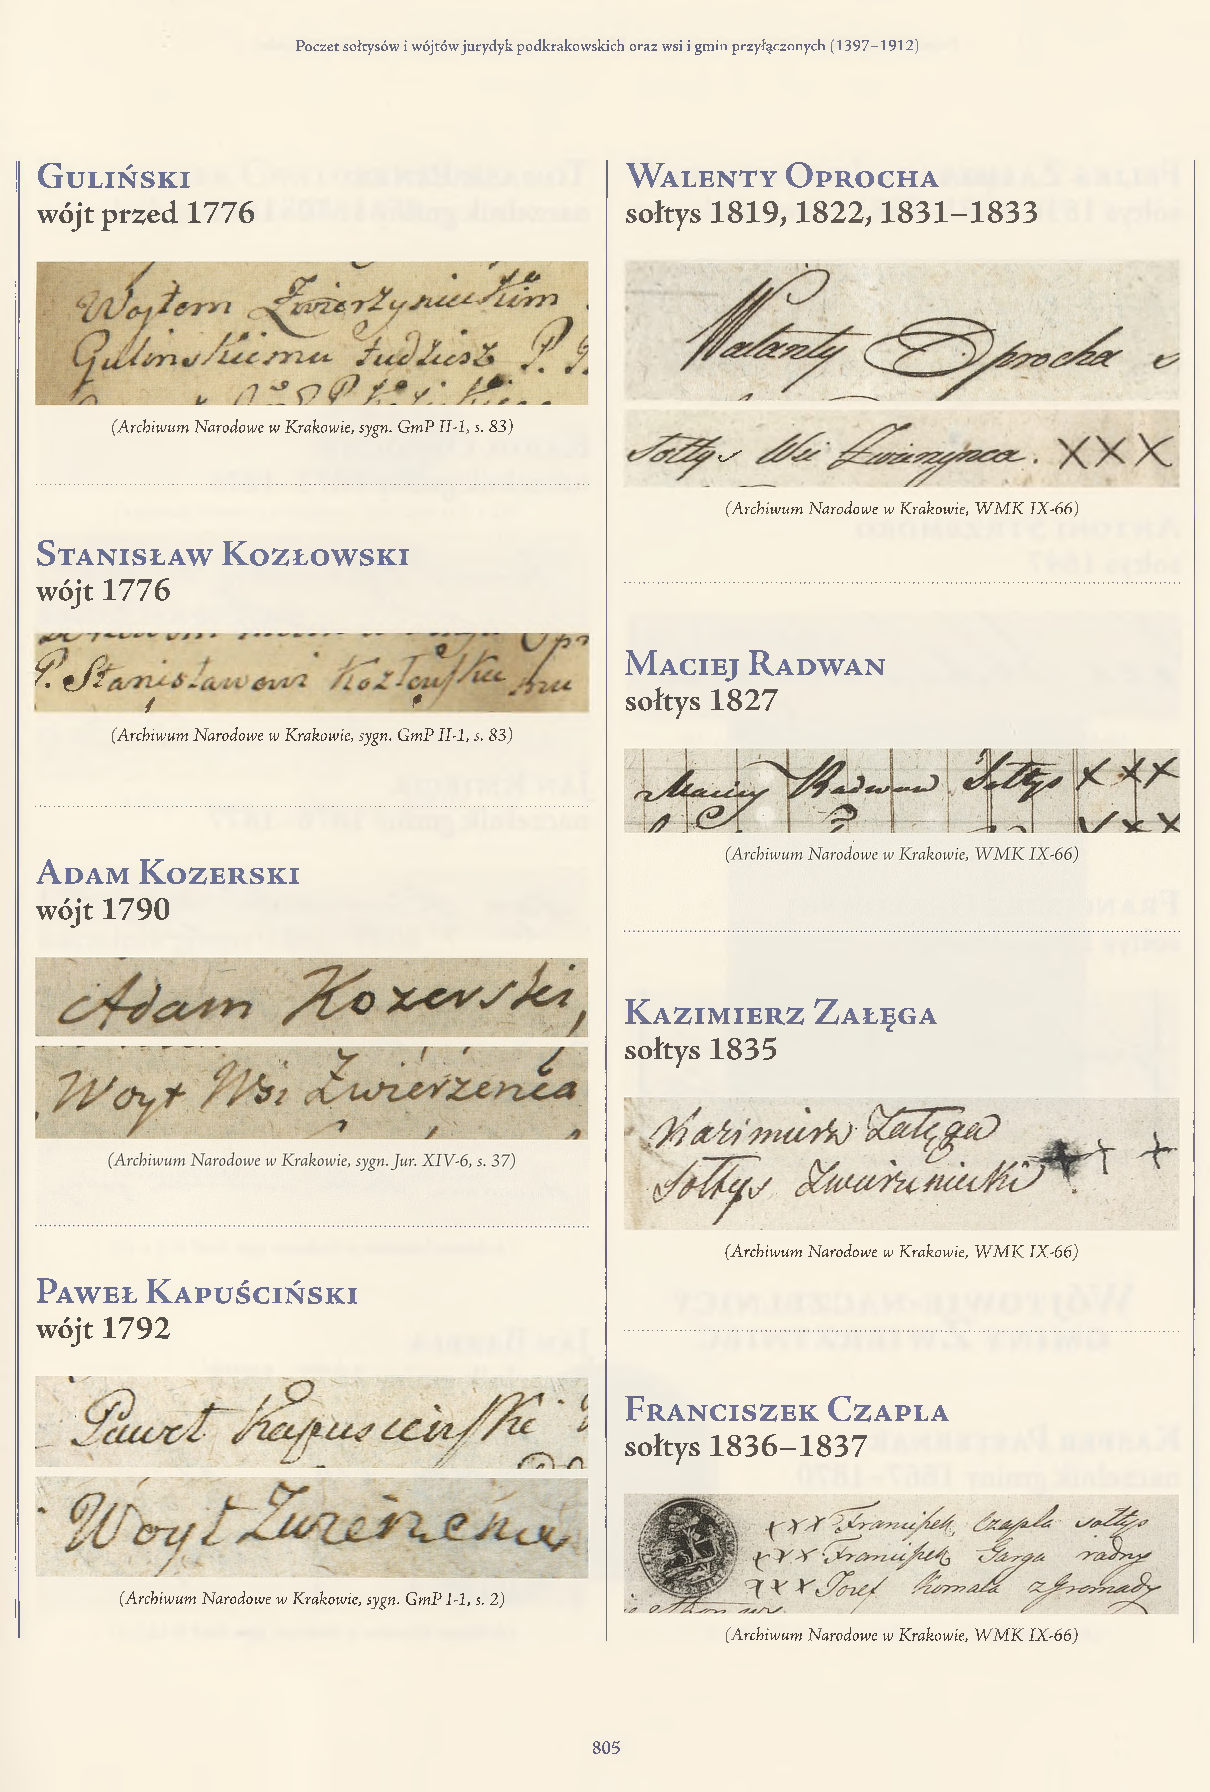 Poczet sołtysów i wójtów jurydyk podkrakowskich oraz wsi i gmin przyłączonych (1397–1912)
Guliński
wójt przed 1776
Woytem Zwierzynieckim
Gulinskiemu tudziesz P.
(Archiwum Narodowe w Krakowie, sygn. GmP II-1, s. 83)
Stanisław Kozłowski
wójt 1776
P. Stanisławowi Kozłowsku mu
(Archiwum Narodowe w Krakowie, sygn. GmP II-1, s. 83)
Adam Kozerski
wójt 1790
Adam Kozerski,
Woyt Wsi Zwierzenca
(Archiwum Narodowe w Krakowie, sygn. Jur. XIV-6, s. 37)
Paweł Kapuściński
wójt 1792
Paweł Kapuscinski
Woyt Zwierzenca
(Archiwum Narodowe w Krakowie, sygn. GmP I-1, s. 2)
Walenty Oprocha
sołtys 1819, 1822, 1831–1833
Walanty Oprocha
Sołtys Wsi Zwierzynca. XXX
(Archiwum Narodowe w Krakowie, WMK IX-66)
Maciej Radwan
sołtys 1827
Maciey Radwan Sołtys XXX
(Archiwum Narodowe w Krakowie, WMK IX-66)
Kazimierz Załęga
sołtys 1835
Kazimierz Załęga
Sołtys Zwierzniecki + + +
(Archiwum Narodowe w Krakowie, WMK IX-66)
Franciszek Czapla
sołtys 1836–1837
XXX Franciszek Czapla sołtys
XXX Franciszek Garga radny
XXX Jozef Komala z Gromady
(Archiwum Narodowe w Krakowie, WMK IX-66)
805